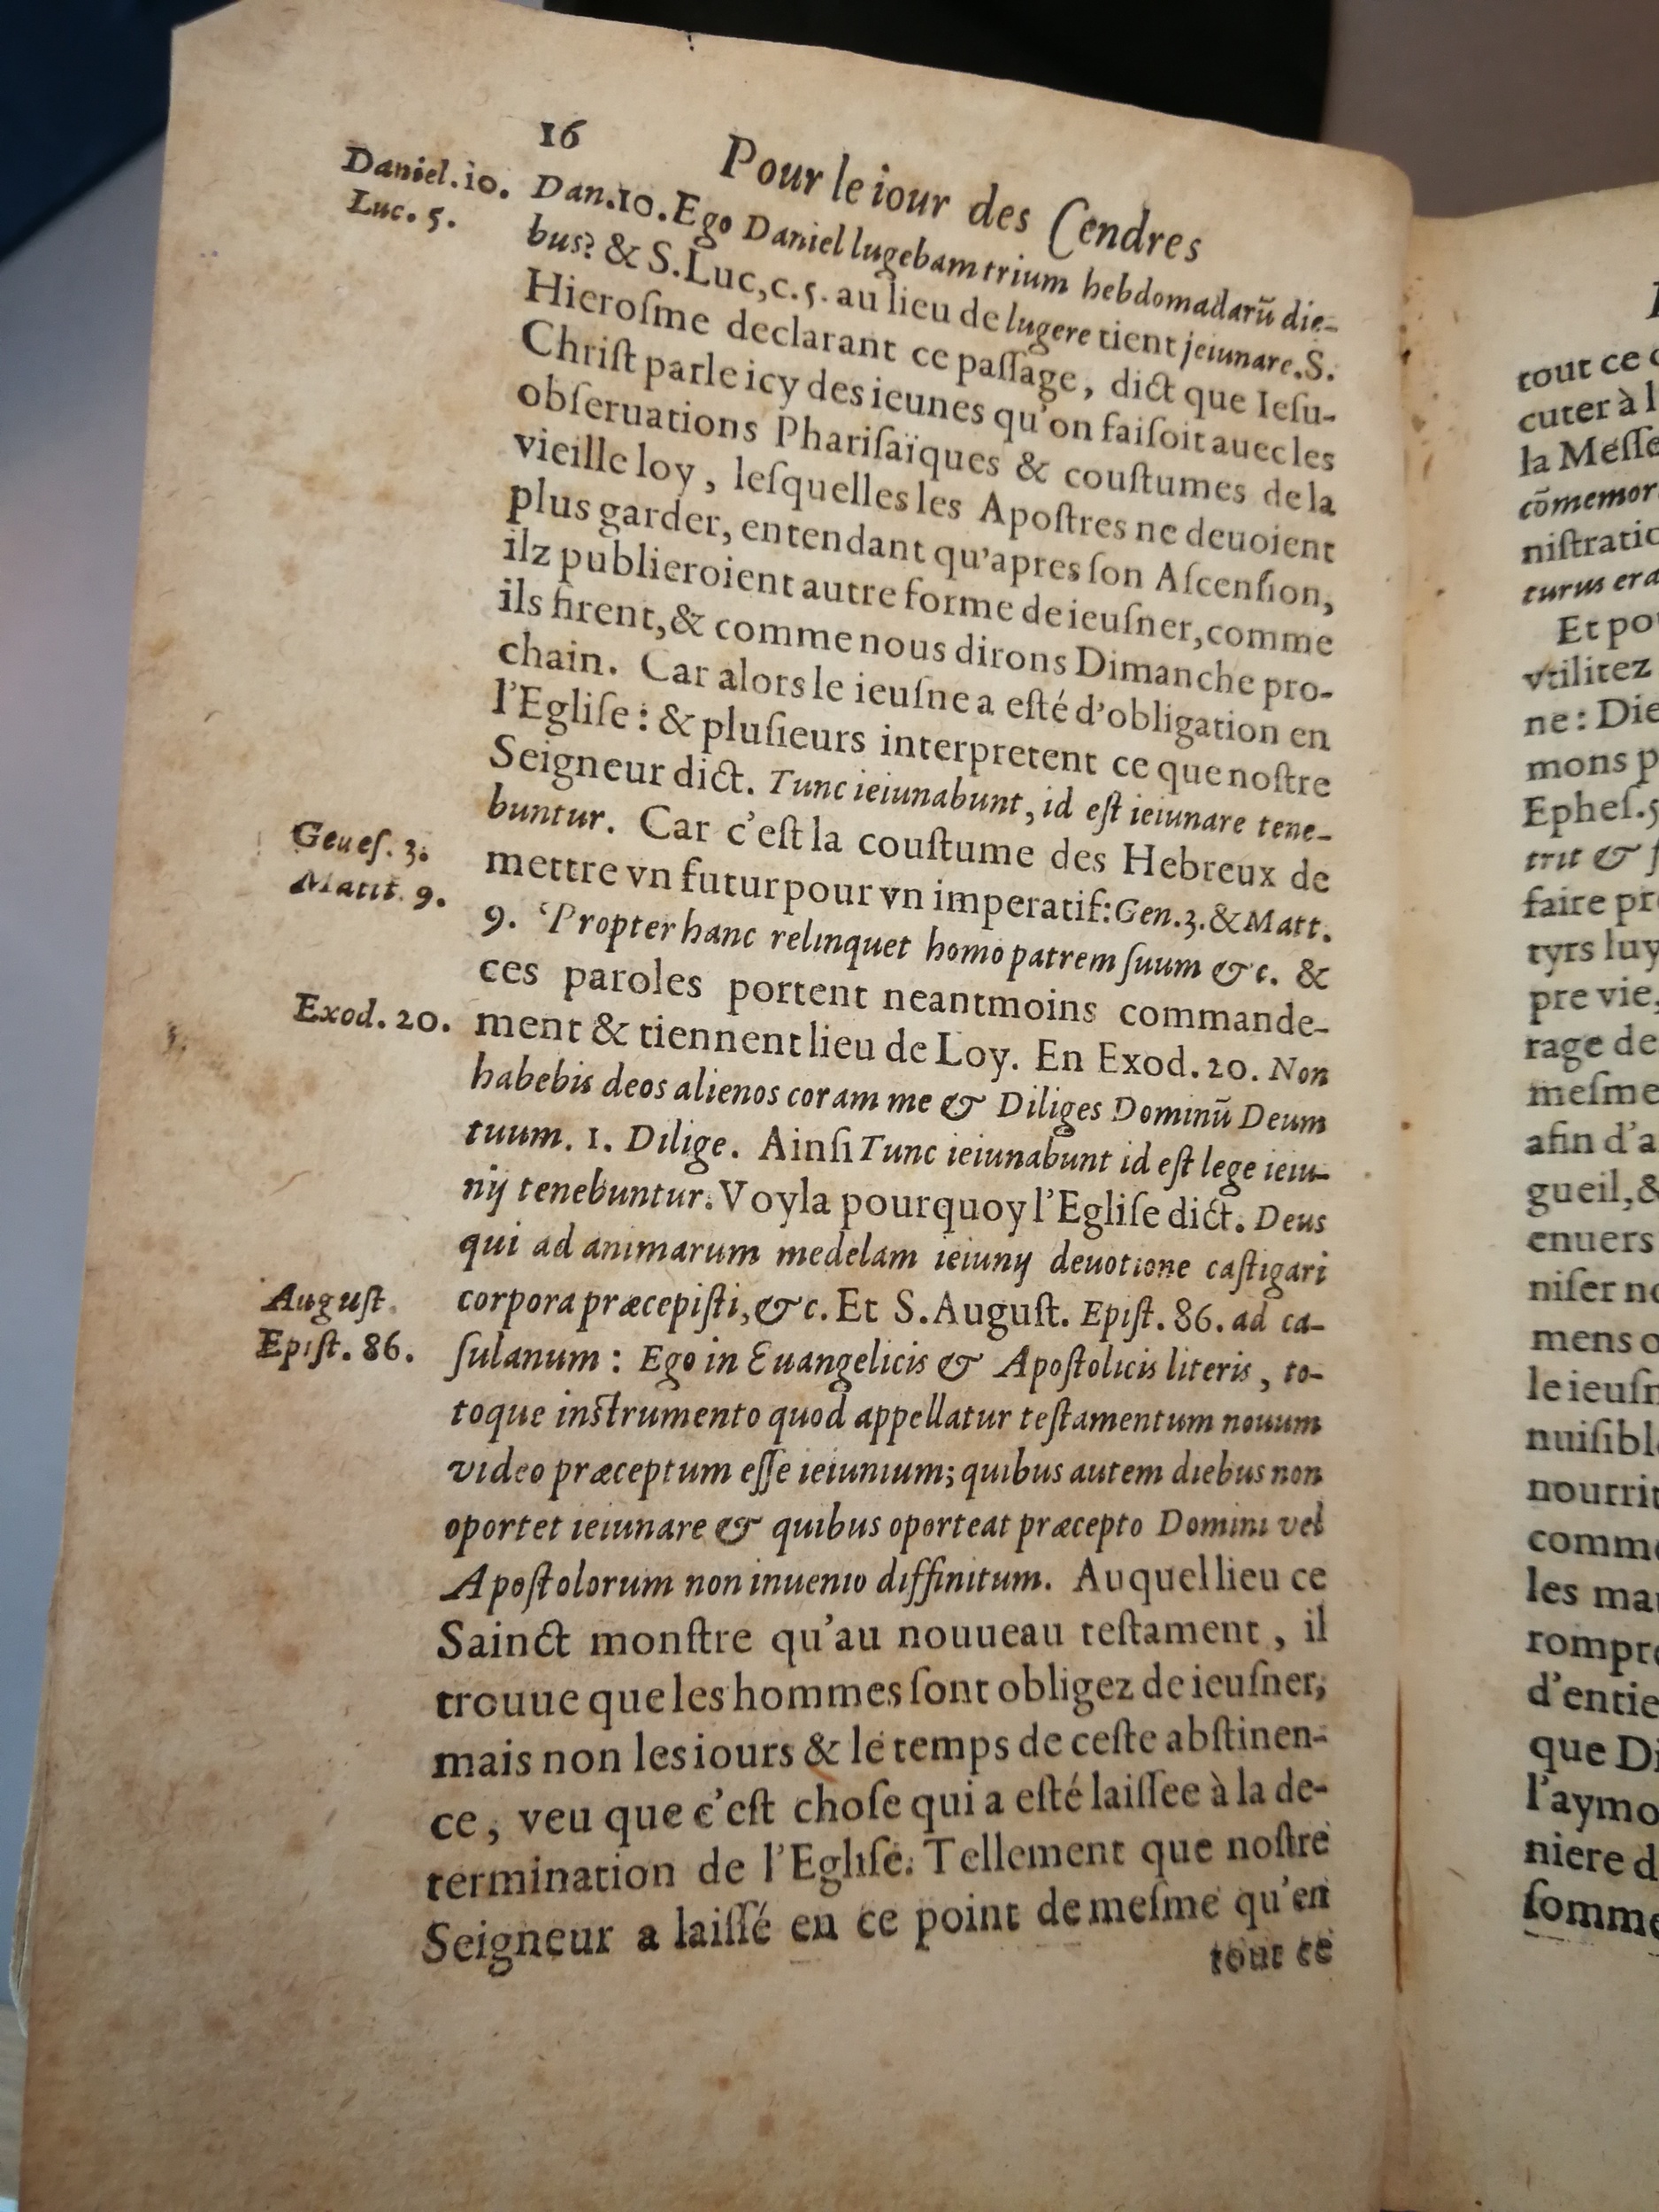 16
Pour le iour des Cendres
Daniel.10.
Luc. 5.
Dan.10. Ego Daniel lugebam trium hebdomadarũ die-
bus? & S.Luc, c.5. au lieu de lugere tient jeiunare. S.
Hieroſme declarant ce paſſage, dict que Ieſu-
Chriſt parle icy des ieunes qu'on faiſoit auec les
obſeruations Phariſaïques & couſtumes de la
vieille loy, leſquelles les Apoſtres ne deuoient
plus garder, entendant qu'apres ſon Aſcenſion,
ilz publieroient autre forme de ieuſner, comme
ils firent, & comme nous dirons Dimanche pro-
chain. Car alors le ieuſne a eſté d'obligation en
l'Egliſe : & pluſieurs interpretent ce que noſtre
Seigneur dict. Tunc ieiunabunt, id eſt ieiunare tene-
buntur. Car c'eſt la couſtume des Hebreux de
Geueſ. 3.
Matit. 9.
mettre vn futur pour vn imperatif: Gen.3. & Matt.
9. Propter hanc relinquet homo patrem ſuum &c. &
ces paroles portent neantmoins commande-
Exod. 20.
ment & tiennent lieu de Loy. En Exod. 20. Non
habebis deos alienos coram me & Diliges Dominũ Deum
tuum. 1. Dilige. Ainſi Tunc ieiunabunt id eſt lege ieiu-
nij tenebuntur. Voyla pourquoy l'Egliſe dict. Deus
qui ad animarum medelam ieiunij deuotione caſtigari
August.
Epiſt. 86.
corpora præcepiſti, &c. Et S. Auguſt. Epiſt. 86. ad ca-
ſulanum : Ego in Euangelicis & Apoſtolicis literis, to-
toque inſtrumento quod appellatur teſtamentum nouum
video præceptum eſſe ieiunium; quibus autem diebus non
oportet ieiunare & quibus oporteat præcepto Domini vel
Apoſtolorum non inuenio diffinitum. Auquel lieu ce
Sainct monſtre qu'au nouueau teſtament, il
trouue que les hommes ſont obligez de ieuſner,
mais non les iours & le temps de ceſte abſtinen-
ce, veu que c'eſt choſe qui a eſté laiſſee à la de-
termination de l'Egliſe. Tellement que noſtre
Seigneur a laiſſé en ce point de meſme qu'en
tout ce
tout ce
cuter à l
la Meſſe
cõmemor
niſtratio
turus era
Et po
vtilitez
ne : Die
mons p
Epheſ.5
trit & ſ
faire pr
tyrs luy
pre vie,
rage de
meſme
afin d'a
gueil, &
enuers
niſer no
mens o
le ieuſn
nuiſibl
nourrit
comme
les mau
rompre
d'entie
que Di
l'aymo
niere d
ſomme